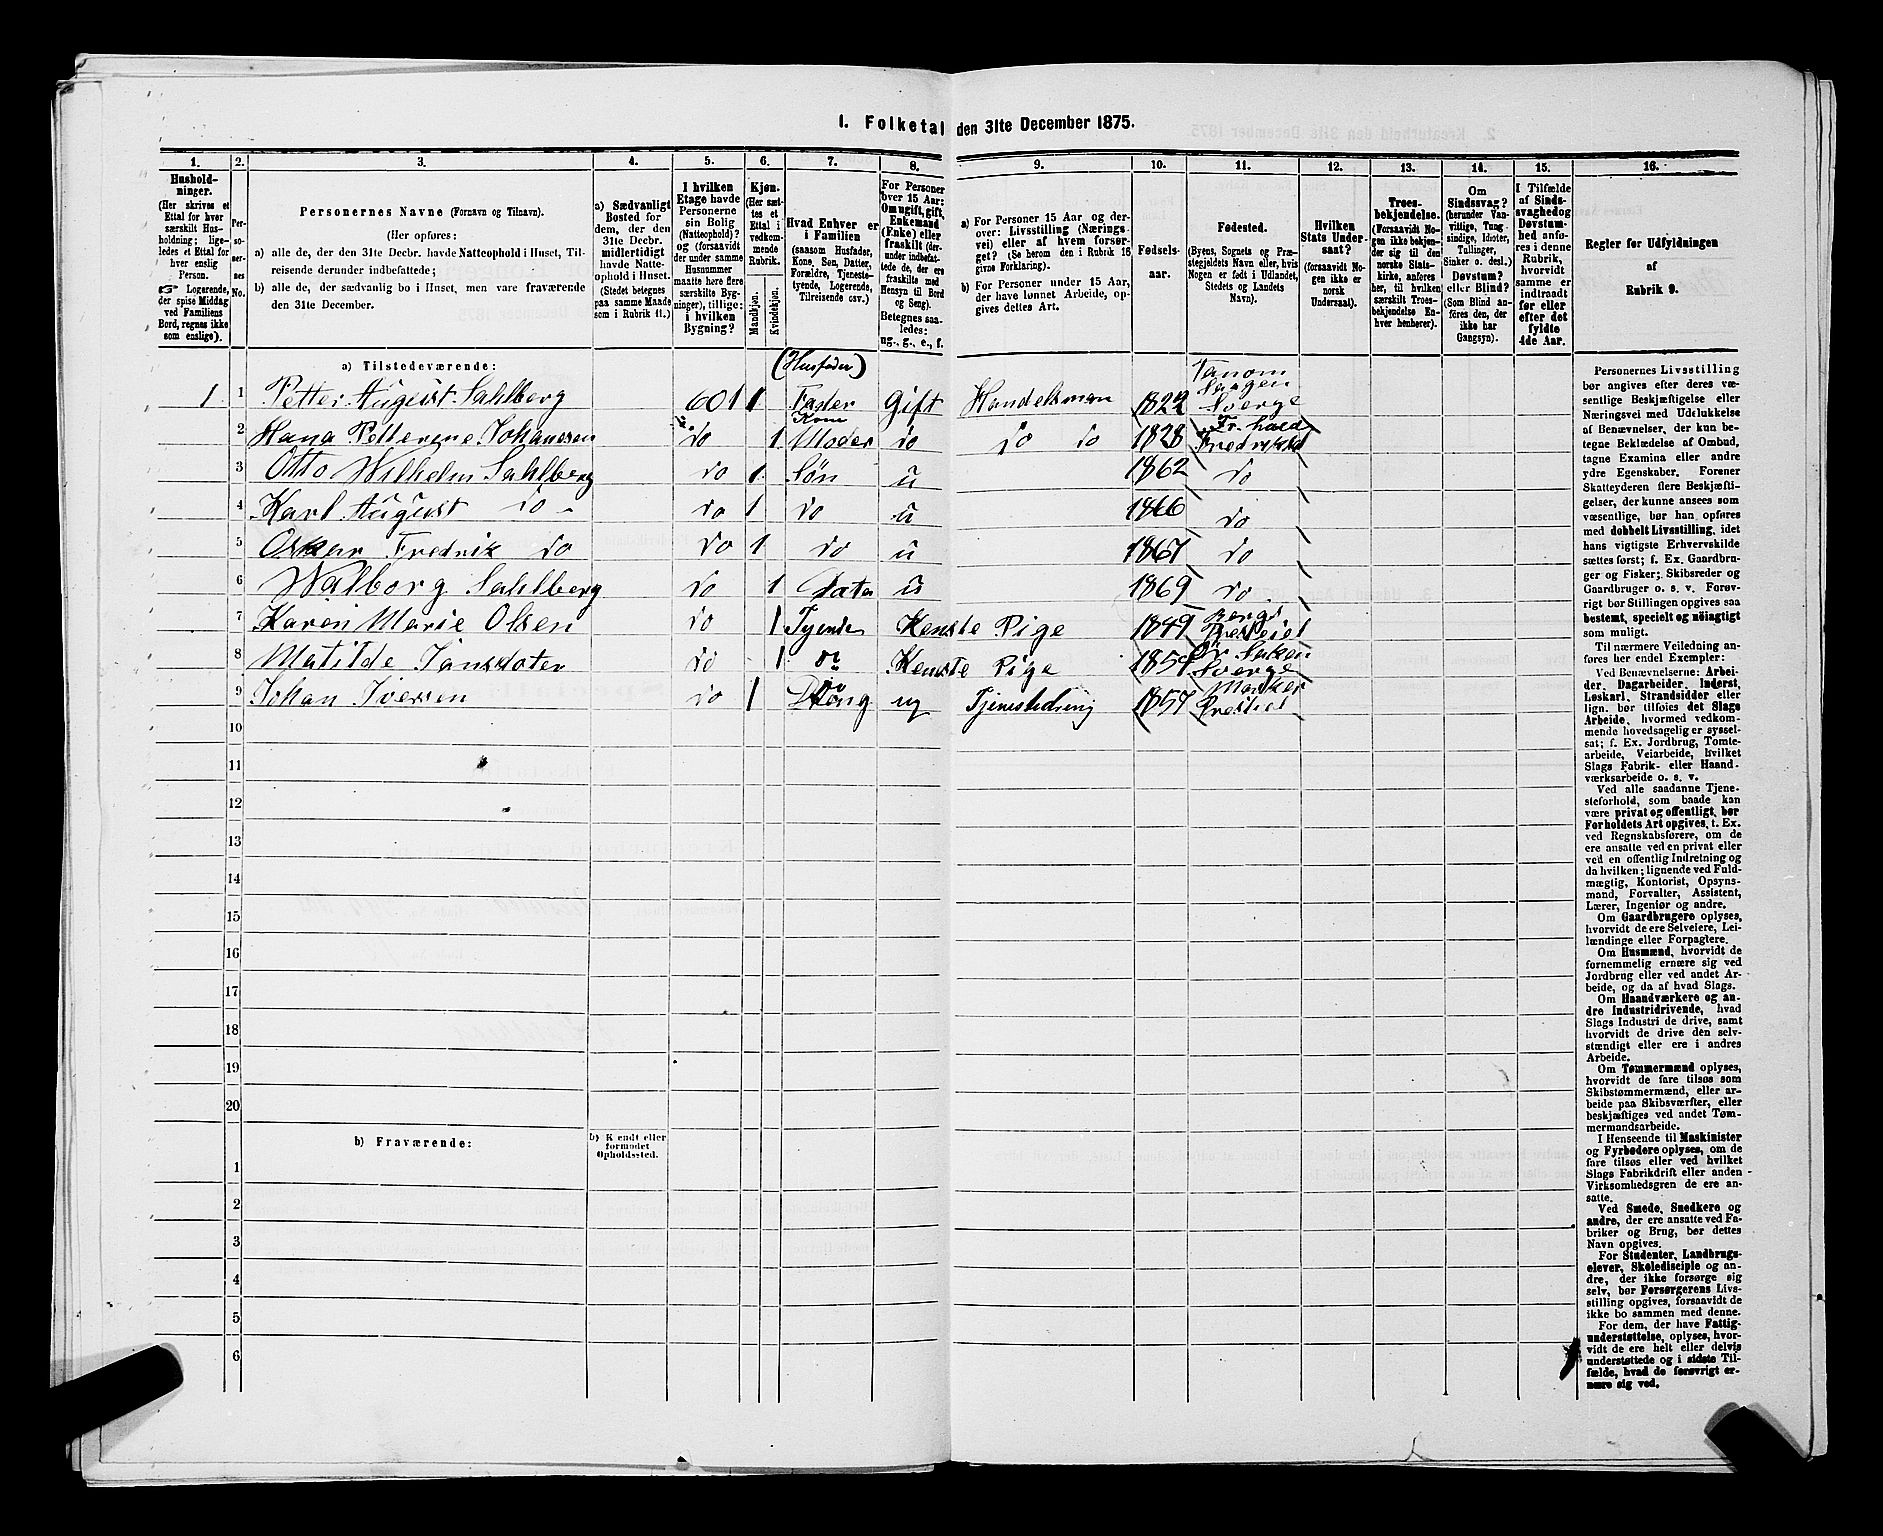 1. Folketal den 31te December 1875.
1. 2. 3. 4. 5. 6. 7. 8. 9. 10. 11. 12. 13. 14. 15. 16.
Hushold-
ninger.
(Her skrives et
Ettal for hver
særskilt Hus-
holdning; lige-
ledes et Ettal for
hver enslig
Person.
☞ Logerende,
der spise Middag
ved Familiens
Bord, regnes ikke
som enslige).
Per-
so-
ner-
nes
No.
Personernes Navne (Fornavn og Tilnavn).
(Her opføres:
a) alle de, der den 31te Decbr. havde Natteophold i Huset, Til-
reisende derunder indbefattede;
b) alle de, der sædvanlig bo i Huset, men vare fraværende
den 31te December.
a) Sædvanligt
Bosted for
dem, der den
31te Decbr.
midlertidigt
havde Natte-
ophold i Huset.
(Stedet betegnes
paa samme Maade
som i Rubrik 11.)
I hvilken
Etage havde
Personerne
sin Bolig
(Natteophold)?
og (forsaavidt
der under samme
Husnummer
maatte høre flere
særskilte Byg-
ninger), tillige:
i hvilken
Bygning?
Kjøn.
(Her sæt-
tes et
Ettal i
vedkom-
mende
Rubrik.
Mandkjøn.
Kvindekjøn.
Hvad Enhver er
i Familien
(saasom Husfader,
Kone, Søn, Datter,
Forældre, Tjeneste-
tyende, Logerende,
Tilreisende osv.)
For Personer
over 15 Aar:
Om ugift, gift,
Enkemand
(Enke) eller
fraskilt (der-
under indbefat-
tede de, der ere
fraskilte med
Hensyn til Bord
og Seng).
Betegnes saa-
ledes:
ug., g., e., f.
a) For Personer 15 Aar og der-
over: Livsstilling (Nærings-
vei) eller af hvem forsør-
get? (Se herom den i Rubrik 16
givne Forklaring).
b) For Personer under 15 Aar,
der have lønnet Arbeide, op-
gives dettes Art.
Fødsels-
aar.
Fødested.
(Byens, Sognets og Præ-
stegjeldets Navn eller, hvis
Nogen er født i Udlandet,
Stedets og Landets
Navn).
Hvilken
Stats Under-
saat?
(forsaavidt No-
gen ikke er
norsk
Undersaat).
Troes-
bekjendelse.
(Forsaavidt No-
gen ikke beken-
der sig til den
norske Stats-
kirke, anføres
her, til hvilken
særskilt Troes-
bekjendelse En-
hver henhører).
Om
Sindssvag?
(herunder Van-
vittige, Tung-
sindige, Idioter,
Tullinger,
Sinker o. desl.)
Døvstum?
eller Blind?
(Som Blind an-
føres den, der
ikke har
Gangsyn).
I Tilfælde
af Sinds-
svaghed og
Døvstum-
hed anfø-
res i denne
Rubrik,
hvorvidt
samme er
indtraadt
før eller
efter det
fyldte
4de Aar.
Regler for Udfyldningen
af
Rubrik 9.
a) Tilstedeværende: (Husfader)
1 1 Petter August Sahlberg 601 1 Fader Gift Handelsman 1822 Tanom Sverge
2 Hana Petterene Johanssen do 1 Kone Moder do do do 1828 Fr. hald
3 Otto Wilhelm Sahlberg do 1 Søn u 1862 do
4 Karl August do do 1 do u 1866 do
5 Oskar Fredrik do do 1 do u 1867 do
6 Walborg Sahlberg do 1 Dater u 1869 do
7 Karen Marie Olsen do 1 Tyende Kenste Pige 1849 Bergs Presteiel
8 Matilde Jansdater do 1 do Kenste Pige Sverge
9 Johan Iversen do 1 ug Tjenestedreng 1857 Marker Prestiel
10
11
12
13
14
15
16
17
18
19
20
b) Fraværende: b) Kjendt eller
formodet
Opholdssted.
1
2
3
4
5
6
Personernes Livsstilling
bør angives efter deres væ-
sentlige Beskjæftigelse eller
Næringsvei med Udelukkelse
af Benævnelser, der kun be-
tegne Beklædelse af Ombud,
tagne Examina eller andre
ydre Egenskaber. Forener
Skatteyderen flere Beskjæfti-
gelser, der kunne ansees som
væsentlige, bør han opføres
med dobbelt Livsstilling, idet
hans vigtigste Erhvervskilde
sættes først; f. Ex. Gaardbru-
ger og Fisker; Skibsreder og
Gaardbruger o. s. v. Forøv-
rigt bør Stillingen opgives saa
bestemt, specielt og nøiagtigt
som muligt.
Til nærmere Veiledning an-
føres her endel Exempler:
Ved Benævnelserne: Arbei-
der, Dagarbeider, Inderst,
Løskarl, Strandsidder eller
lign. bør tilføies det Slags
Arbeide, hvormed vedkom-
mende hovedsagelig er syssel-
sat; f. Ex. Jordbrug, Tomte-
arbeide, Veiarbeide, hvilket
Slags Fabrik- eller Haand-
værksarbeide o. s. v.
Ved alle saadanne Tjene-
steforhold, som baade kan
være privat og offentligt, bør
Forholdets Art opgives, t. Ex.
ved Regnskabsførere, om de
ere ansatte ved en privat eller
ved en offentlig Indretning og
da hvilken; lignende ved Fuld-
mægtig, Kontorist, Opsyns-
mand, Forvalter, Assistent,
Lærer, Ingeniør og andre.
Om Gaardbrugere oplyses,
hvorvidt de ere Selveiere, Lei-
lændinge eller Forpagtere.
Om Husmænd, hvorvidt de
fornemmelig ernære sig ved
Jordbrug eller ved andet Ar-
beide, og da af hvad Slags.
Om Haandværkere og an-
dre Industridrivende, hvad
Slags Industri de drive, samt
hvorvidt de drive den selv-
stændigt eller ere i andres
Arbeide.
Om Tømmermænd oplyses,
hvorvidt de fare tilsøs som
Skibstømmermænd, eller ar-
beide paa Skibsværfter, eller
beskjæftiges ved andet Tøm-
mermandsarbeide.
I Henseende til Maskinister
og Fyrbødere oplyses, om de
fare tilsøs eller ved hvilket
Slags Fabrikdrift eller anden
Virksomhedsgren de ere an-
satte.
Ved Smede, Snedkere og
andre, der ere ansatte ved Fa-
briker og Brug, bør dettes
Navn opgives.
For Studenter, Landbrugs-
elever, Skoledisciple og an-
dre, der ikke forsørge sig
selv, bør Forsørgerens Livs-
stilling opgives, forsaavidt de
ikke bo sammen med denne.
For dem, der have Fattig-
understøttelse, oplyses, hvor-
vidt de ere helt eller delvis
understøttede og i sidste Til-
fælde, hvad de forøvrigt er-
nære sig ved.